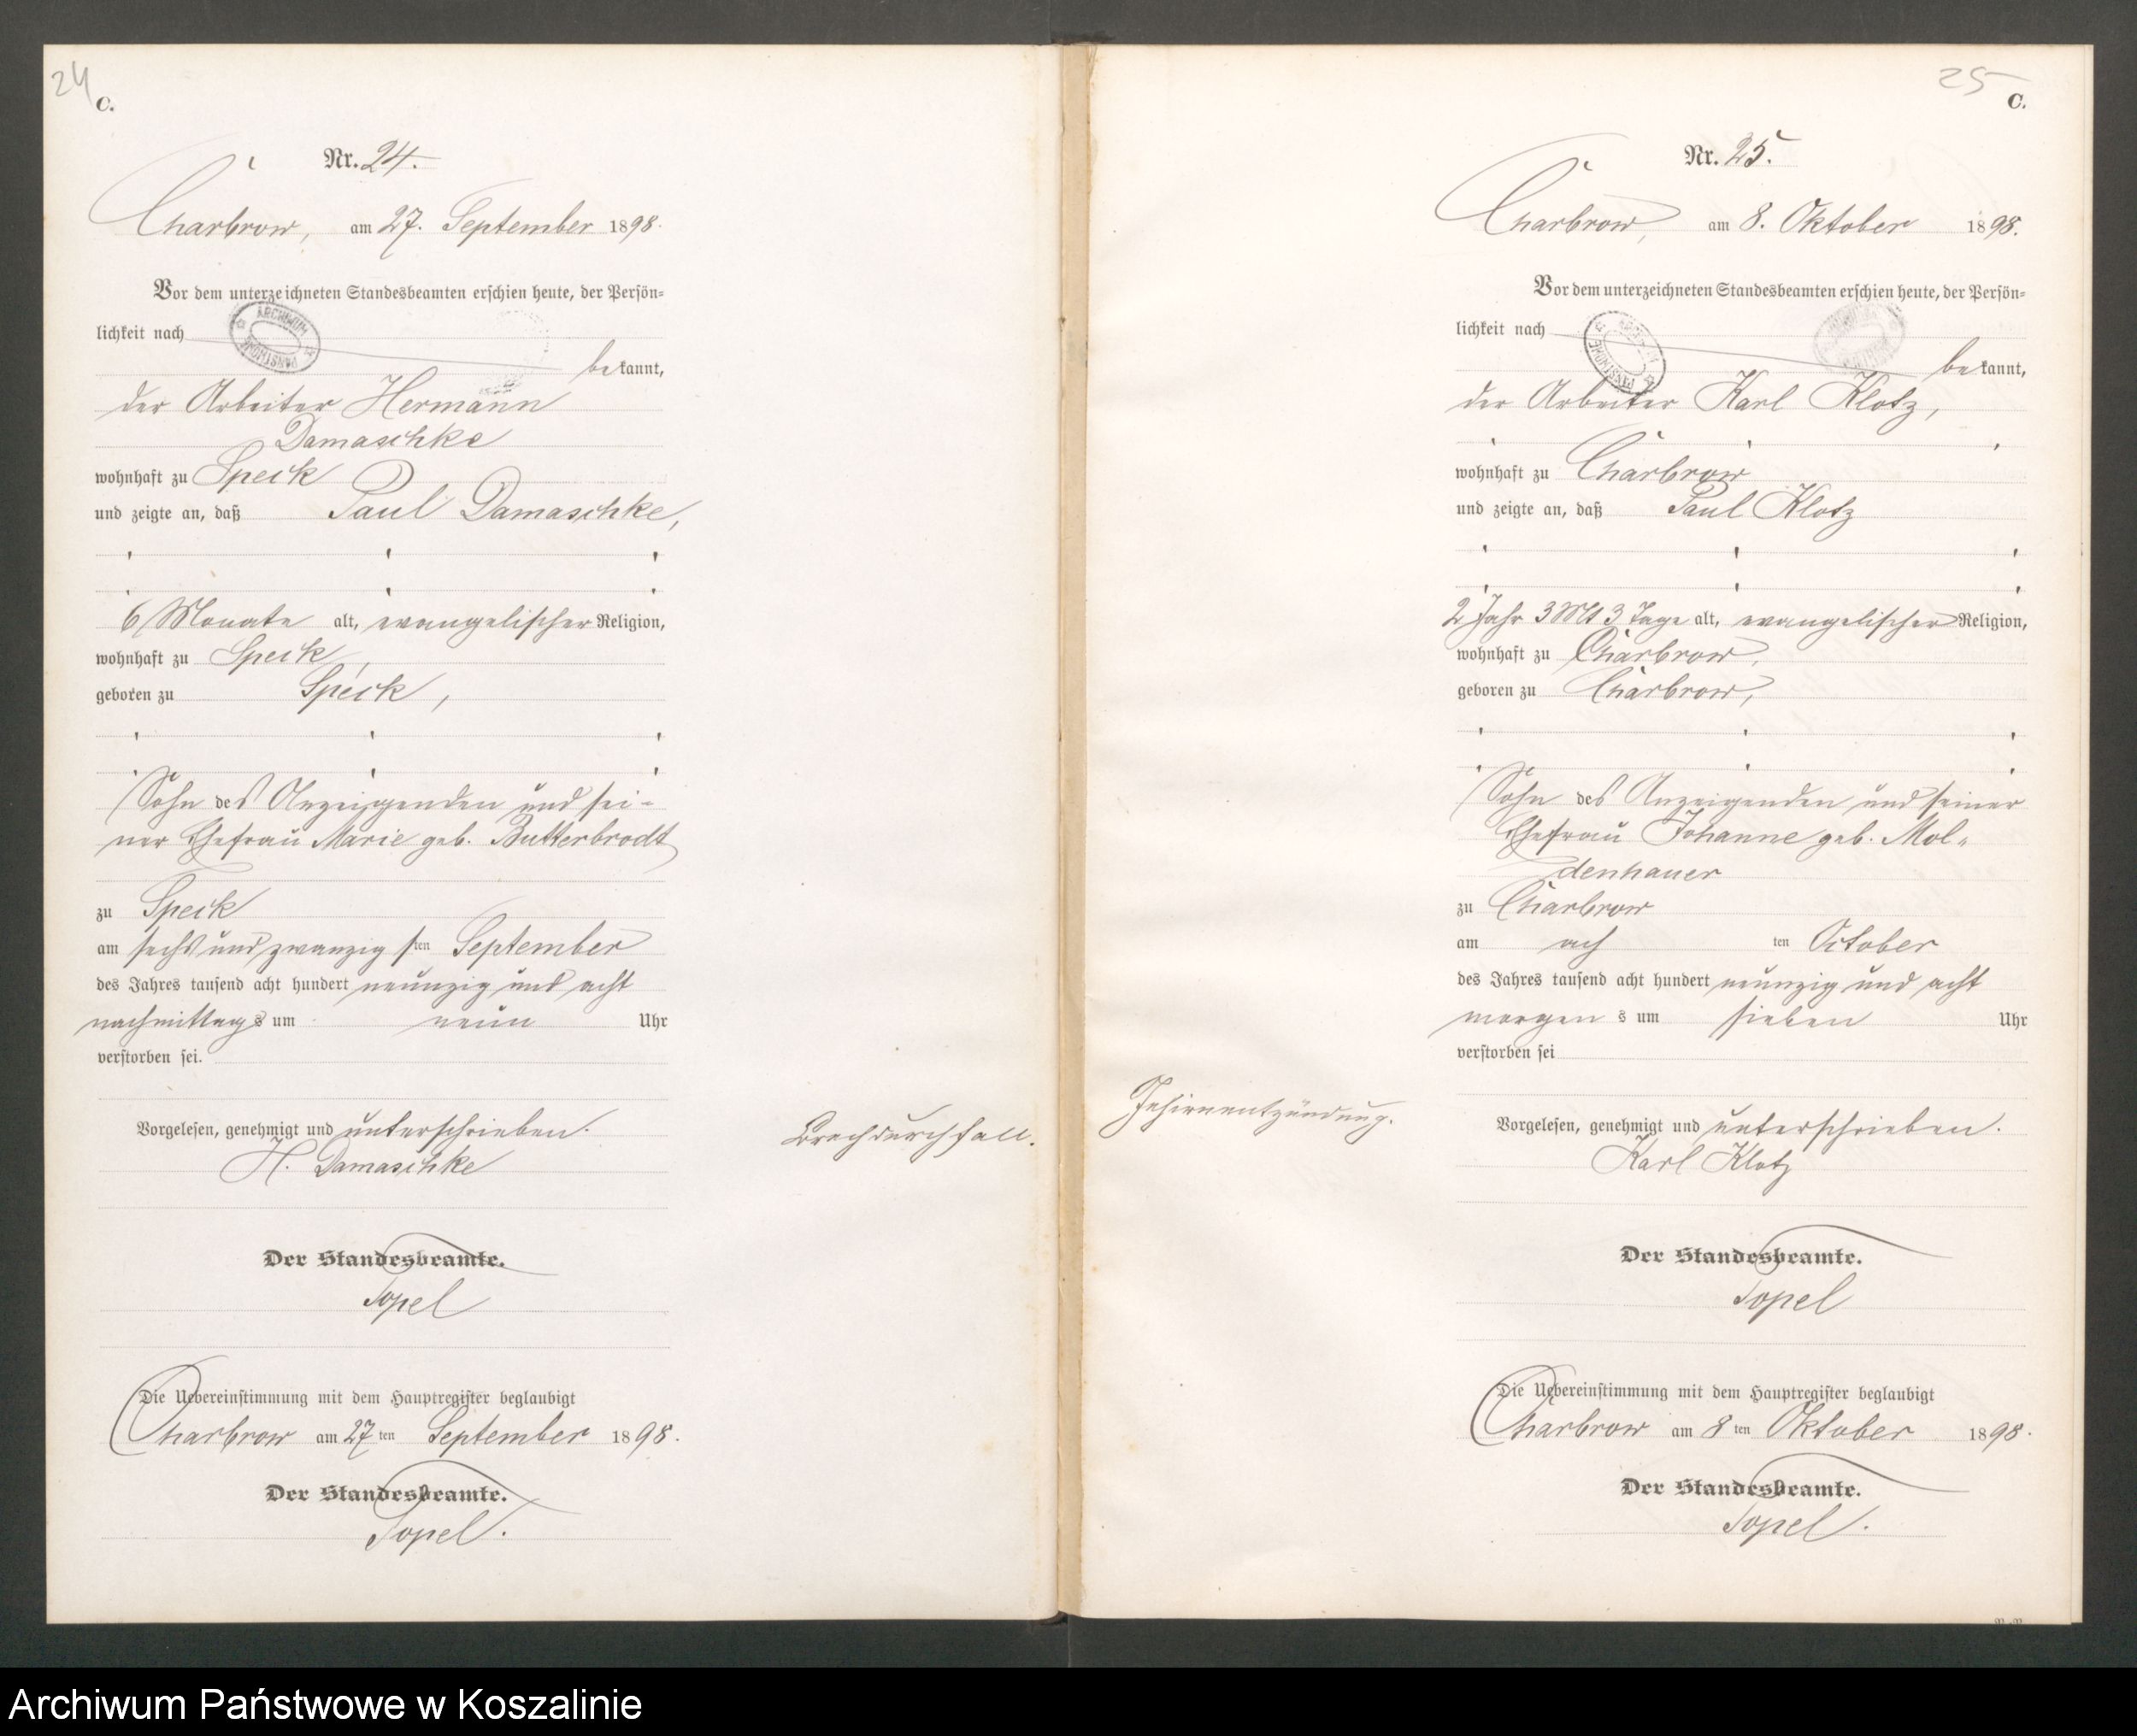 24
C.
Nr. 24.
Charbrow, am 27. September 1898.
Vor dem unterzeichneten Standesbeamten erschien heute, der Persön=
lichkeit nach
ARCHIWUM
PAŃSTWOWE
bekannt,
der Arbeiter Hermann
Damaschke
wohnhaft zu Speck
und zeigte an, daß Paul Damaschke,
6 Monate alt, evangelischer Religion,
wohnhaft zu Speck,
geboren zu Speck,
Sohn des Anzeigenden und sei-
ner Ehefrau Marie geb. Butterbrodt
zu Speck
am sechsundzwanzigsten September
des Jahres tausend acht hundert neunzig und acht
nachmittags um neun Uhr
verstorben sei.
Vorgelesen, genehmigt und unterschrieben.
H. Damaschke
Brechdurchfall.
Der Standesbeamte.
Sopel
Die Uebereinstimmung mit dem Hauptregister beglaubigt
Charbrow am 27ten September 1898.
Der Standesbeamte.
Sopel.
25
C.
Nr. 25.
Charbrow, am 8. Oktober 1898.
Vor dem unterzeichneten Standesbeamten erschien heute, der Persön=
lichkeit nach
ARCHIWUM
PAŃSTWOWE
bekannt,
der Arbeiter Karl Klotz,
wohnhaft zu Charbrow
und zeigte an, daß Paul Klotz
2 Jahr 3 Mt 3 Tage alt, evangelischer Religion,
wohnhaft zu Charbrow,
geboren zu Charbrow,
Sohn des Anzeigenden und seiner
Ehefrau Johanne geb. Mol=
denhauer
zu Charbrow
am ach ten October
des Jahres tausend acht hundert neunzig und acht
morgens um sieben Uhr
verstorben sei
Gehirnentzündung.
Vorgelesen, genehmigt und unterschrieben.
Karl Klotz
Der Standesbeamte.
Sopel
Die Uebereinstimmung mit dem Hauptregister beglaubigt
Charbrow am 8ten Oktober 1898.
Der Standesbeamte.
Sopel.
Archiwum Państwowe w Koszalinie